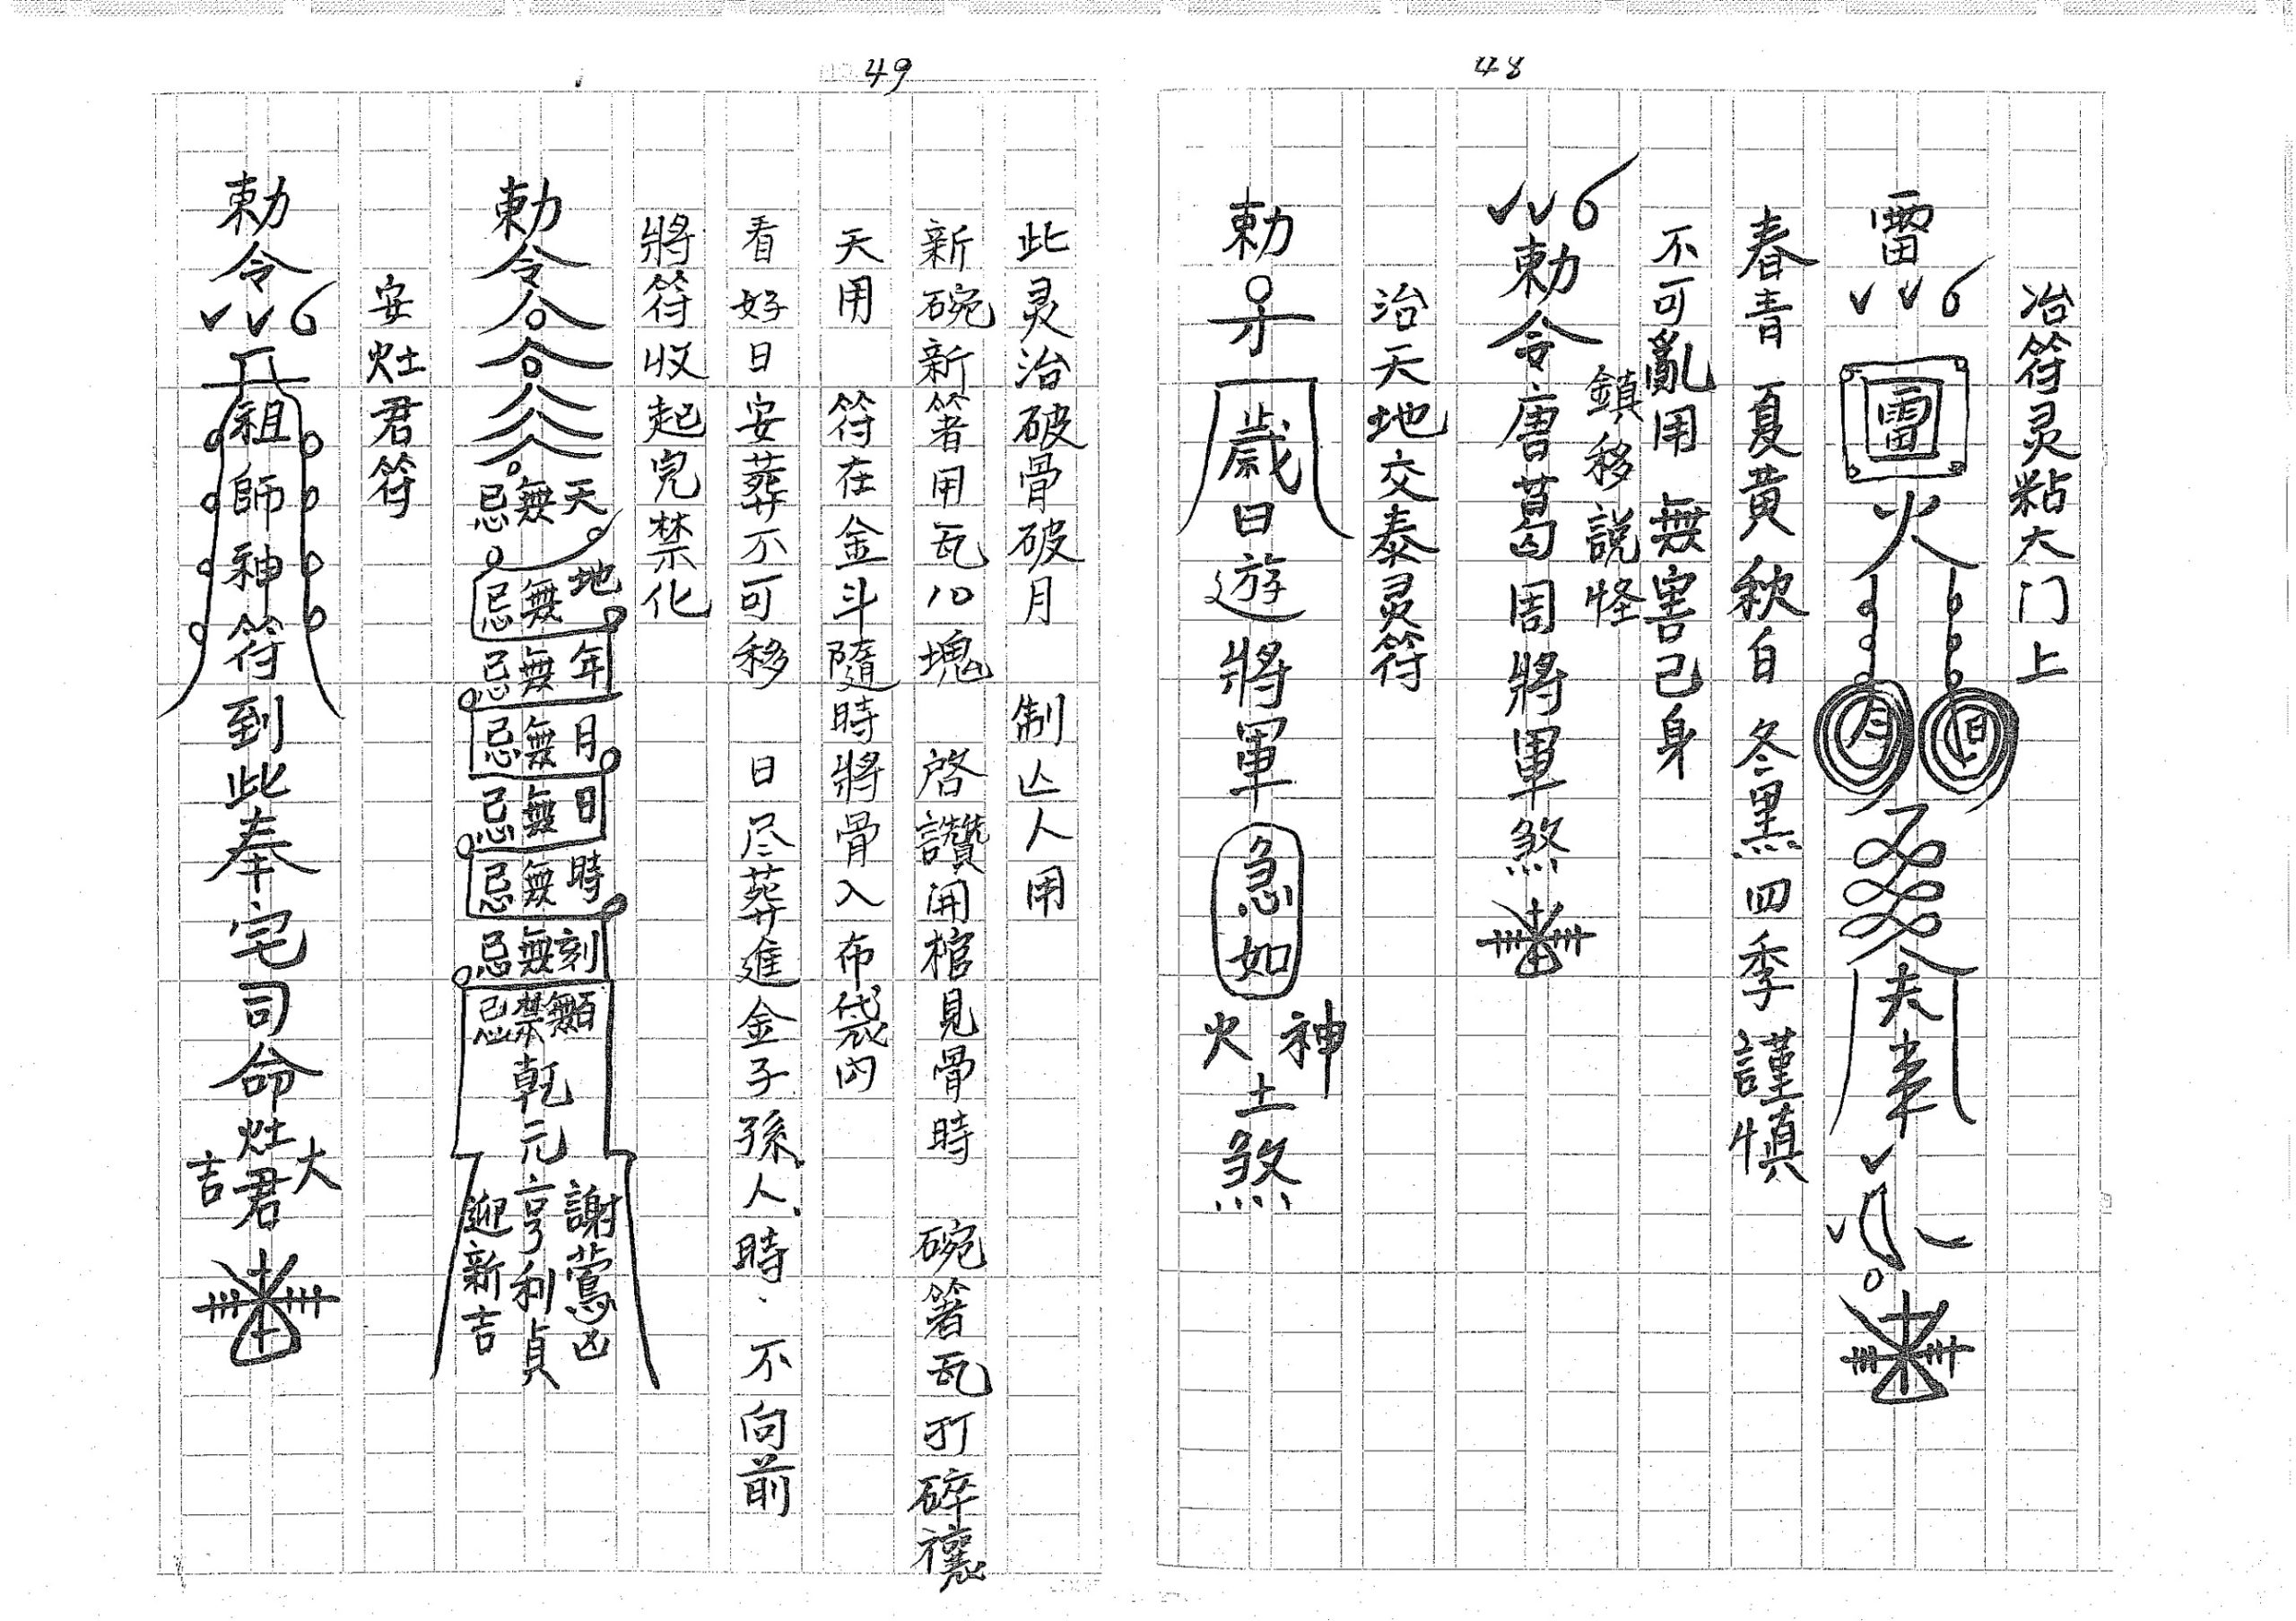 48
冶符灵粘大门上
雷
雷
火
日
月
夫
春青 夏黄 秋白 冬黑 四季 謹慎
不可亂用 無害己身
鎮移説怪
勅令唐葛周將軍煞
治天地交泰灵符
勅
歲日遊將軍
急如
神
火
土煞
49
此灵治破骨破月 制亾人用
新碗新箸用瓦10塊 啓讚開棺見骨時 碗箸瓦打碎禳
天用 符在金斗隨時將骨入布袋内
看好日安葬不可移 日尽葬進金子孫人時.不向前
將符收起完禁化
勅令
天無忌
地無忌
年無忌
月無忌
日無忌
時無忌
刻無忌
百無禁忌
乾元亨利貞
謝凶
迎新吉
安灶君符
勅令
祖師神符到此奉宅司命灶君
大
吉